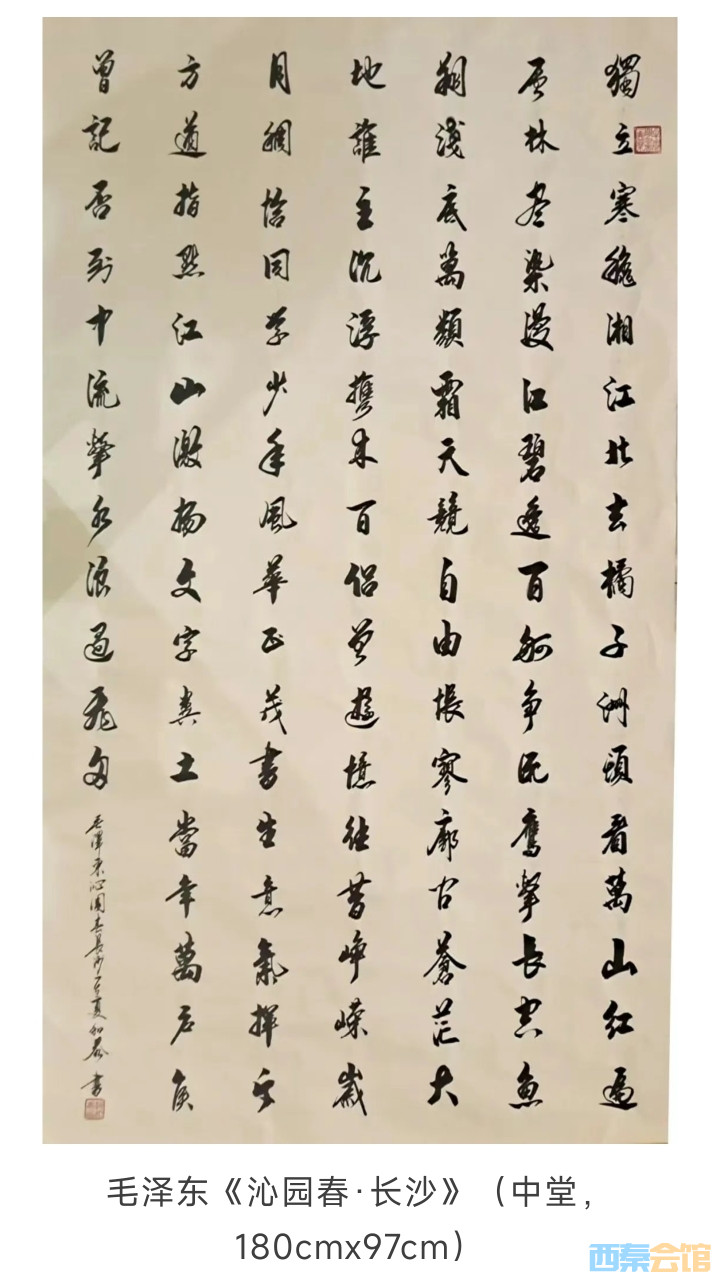 獨立寒秋湘江北去橘子洲頭看萬山紅遍
層林尽染漫江碧透百舸争流鷹擊長空魚
翔淺底萬類霜天競自由悵寥廓問蒼茫大
地誰主沉浮攜来百侣曾遊憶往昔崢嶸歲
月稠恰同学少年風華正茂書生意氣揮斥
方遒指點江山激揚文字糞土當年萬户侯
曾記否到中流擊水浪遏飛舟
毛澤東沁園春長沙 夏 書
毛泽东《沁园春·长沙》（中堂，
180cmx97cm）
西秦会馆